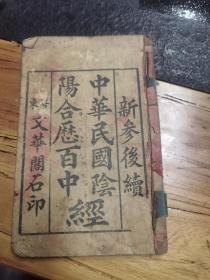 新參後續
中華民國陰
陽合歷百中經
文華閣石印